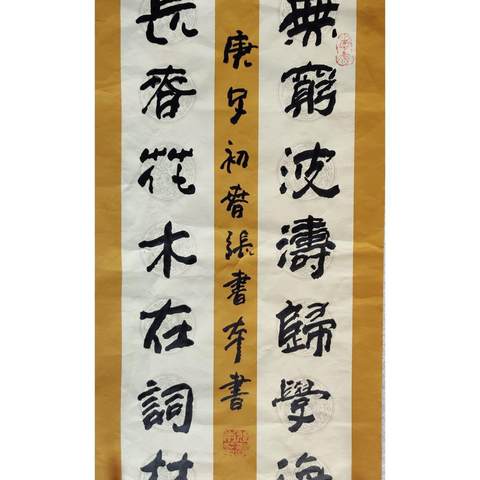 無窮波濤歸學海
長春花木在詞林
庚子初春張書本書